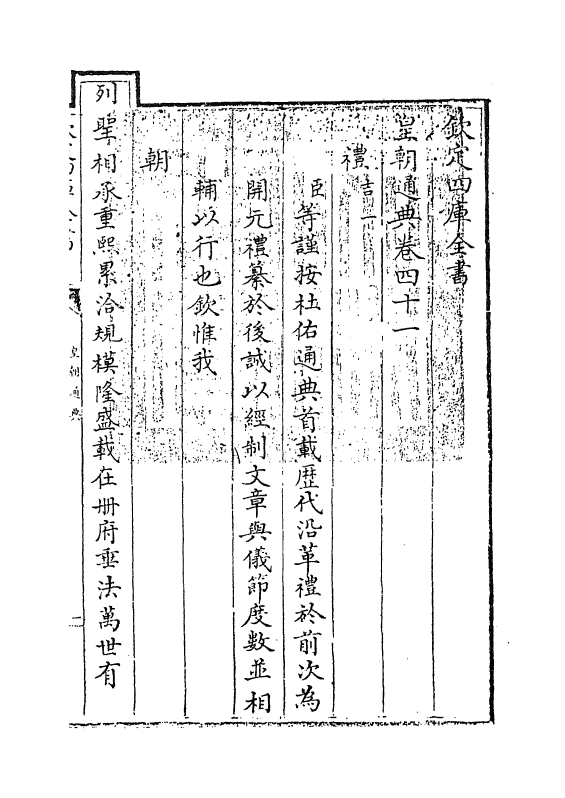 欽定四庫全書
皇朝通典卷四十一
禮吉一
臣等謹按杜佑通典首載歴代沿革禮於前次為
開元禮纂於後誠以經制文章與儀節度數並相
輔以行也欽惟我
朝
列聖相承重熙累洽規模隆盛載在冊府垂法萬世有
皇朝通典